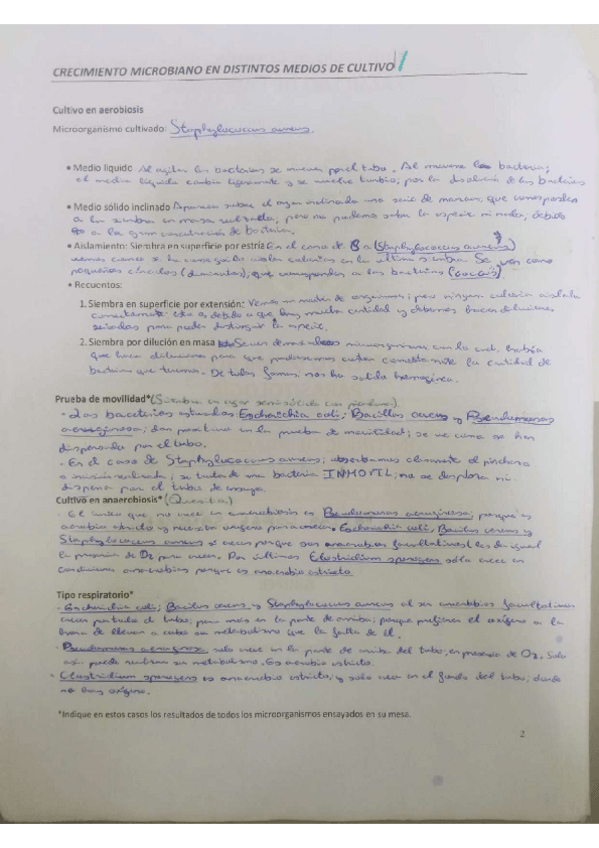 CRECIMIENTO MICROBIANO EN DISTINTOS MEDIOS DE CULTIVO
Cultivo en aerobiosis
Microorganismo cultivado: Staphylococcus aureus.
• Medio líquido Al agitar las bacterias se mueven por el tubo. Al moverse las bacterias;
el medio líquido cambia ligeramente y se vuelve turbio; por la disolución de las bacterias
• Medio sólido inclinado Aparecen sobre el agar inclinado una serie de marcas, que corresponden
a la siembra en masa realizada; pero no podemos saber la especie ni nada, debido
a la gran concentración de bacterias.
• Aislamiento: Siembra en superficie por estría En el caso de B a (Staphylococcus aureus)
vemos como se ha conseguido aislar colonias en la última siembra. Se ven como
pequeños círculos (diminutos); que corresponden a las bacterias (cocos)
• Recuentos:
1. Siembra en superficie por extensión: Vemos un montón de organismos; pero ninguna colonia aislada
correctamente. Esto es debido a que hay mucha cantidad y debemos hacer diluciones
seriadas para poder distinguir la especie.
2. Siembra por dilución en masa microorganismos con lo cual, habría
que hacer diluciones para que pudiésemos contar correctamente la cantidad de
bacterias que tenemos. De todas formas nos ha salido homogénea.
Prueba de movilidad* (Siembra en agar semisólido con picadura).
- Las bacterias estudiadas: Escherichia coli; Bacillus cereus y Pseudomonas
aeruginosa; dan positivo en la prueba de movilidad; se ve como se han
dispersado por el tubo.
- En el caso de Staphylococcus aureus; observamos claramente el pinchazo
o incisión realizada; se trata de una bacteria INMOVIL; no se desplaza ni
dispersa por el tubo de ensayo.
Cultivo en anaerobiosis*
- El único que no crece en anaerobiosis es Pseudomonas aeruginosa; porque es
aerobio estricto y necesita oxígeno para crecer. Escherichia coli; Bacillus cereus y
Staphylococcus aureus sí crecen porque son anaerobias facultativas: les da igual
la presencia de O2 para crecer. Por último: Clostridium sporogenes sólo crece en
condiciones anaerobias porque es anaerobio estricto.
Tipo respiratorio*
- Escherichia coli; Bacillus cereus y Staphylococcus aureus al ser anaerobios facultativos
crecen por todo el tubo; pero más en la parte de arriba; porque prefieren el oxígeno a la
hora de llevar a cabo su metabolismo que la falta de él.
- Pseudomonas aeruginosa, solo crece en la parte de arriba del tubo, en presencia de O2. Solo
así puede realizar su metabolismo. Es aerobio estricto.
- Clostridium sporogenes es anaerobio estricto; y solo crece en el fondo del tubo; donde
no hay oxígeno.
*Indique en estos casos los resultados de todos los microorganismos ensayados en su mesa.
2